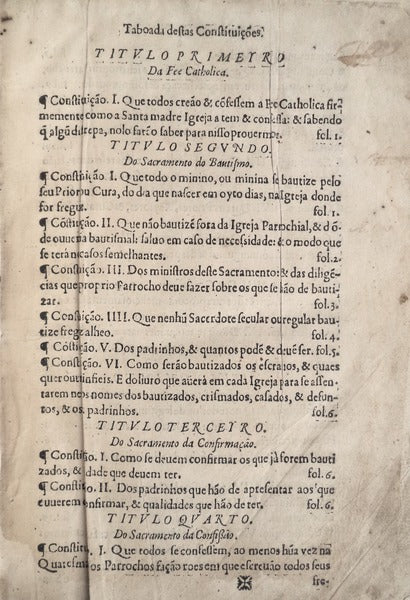 Taboada destas Constituições.
TITVLO PRIMEYRO
Da Fee Catholica.
¶ Constituição. I. Que todos creão & cõfessem a Fee Catholica fir-
memente como a Santa madre Igreja a tem & confessa: & sabendo
q̃ algũ discrepa, nolo farão saber para nisso prouermos. fol. 1.
TITVLO SEGVNDO.
Do Sacramento do Bautismo.
¶ Constituição. I. Que todo o minino, ou minina se bautize pelo
seu Prior ou Cura, do dia que nascer em oyto dias, na Igreja donde
for fregues. fol. 1.
¶ Cõstituição. II. Que não bautizẽ fora da Igreja Parrochial, & d'õ-
de ouuer pia bautismal: saluo em caso de necessidade: & o modo que
se terá nos casos semelhantes. fol. 2.
¶ Constituição. III. Dos ministros deste Sacramento: & das diligẽ-
cias que o proprio Parrocho deue fazer sobre os que se hão de bauti-
zar. fol. 3.
¶ Constituição. IIII. Que nenhũ Sacerdote secular ou regular bau-
tize freguès alheo. fol. 4.
¶ Cõstituição. V. Dos padrinhos, & quantos podẽ & deuẽ ser. fol. 5.
¶ Constituição. VI. Como serão bautizados os escrauos, & quaes
quer outros infieis. E do liuro que auerá em cada Igreja para se assen-
tarem nelle os nomes dos bautizados, crismados, casados, & defun-
tos, & os padrinhos. fol. 6.
TITVLO TERCEYRO.
Do Sacramento da Confirmação.
¶ Constituição. I. Como se deuem confirmar os que já forem bauti
zados, & a idade que deuem ter. fol. 6.
¶ Constituição. II. Dos padrinhos que hão de apresentar aos que
ouuerem de confirmar, & qualidades que hão de ter. fol. 6.
TITVLO QVARTO.
Do Sacramento da Confissão.
¶ Constituição. I. Que todos se confessem, ao menos hũa vez na
Quaresma: & os Parrochos fação roes em que escreuão todos seus
fre-